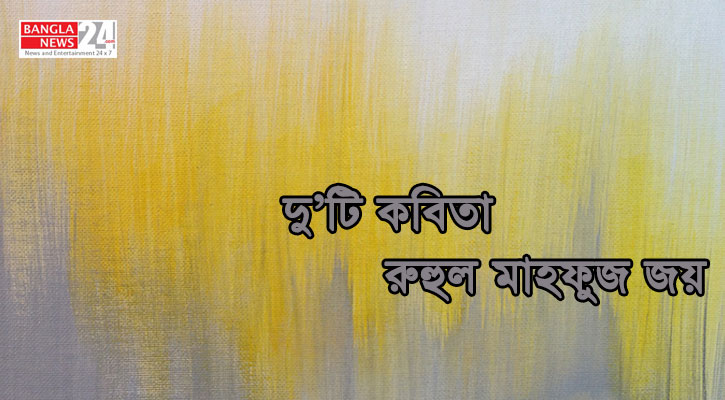 BANGLA
NEWS 24.com
News and Entertainment 24 x 7
দু’টি কবিতা
রুহুল মাহফুজ জয়